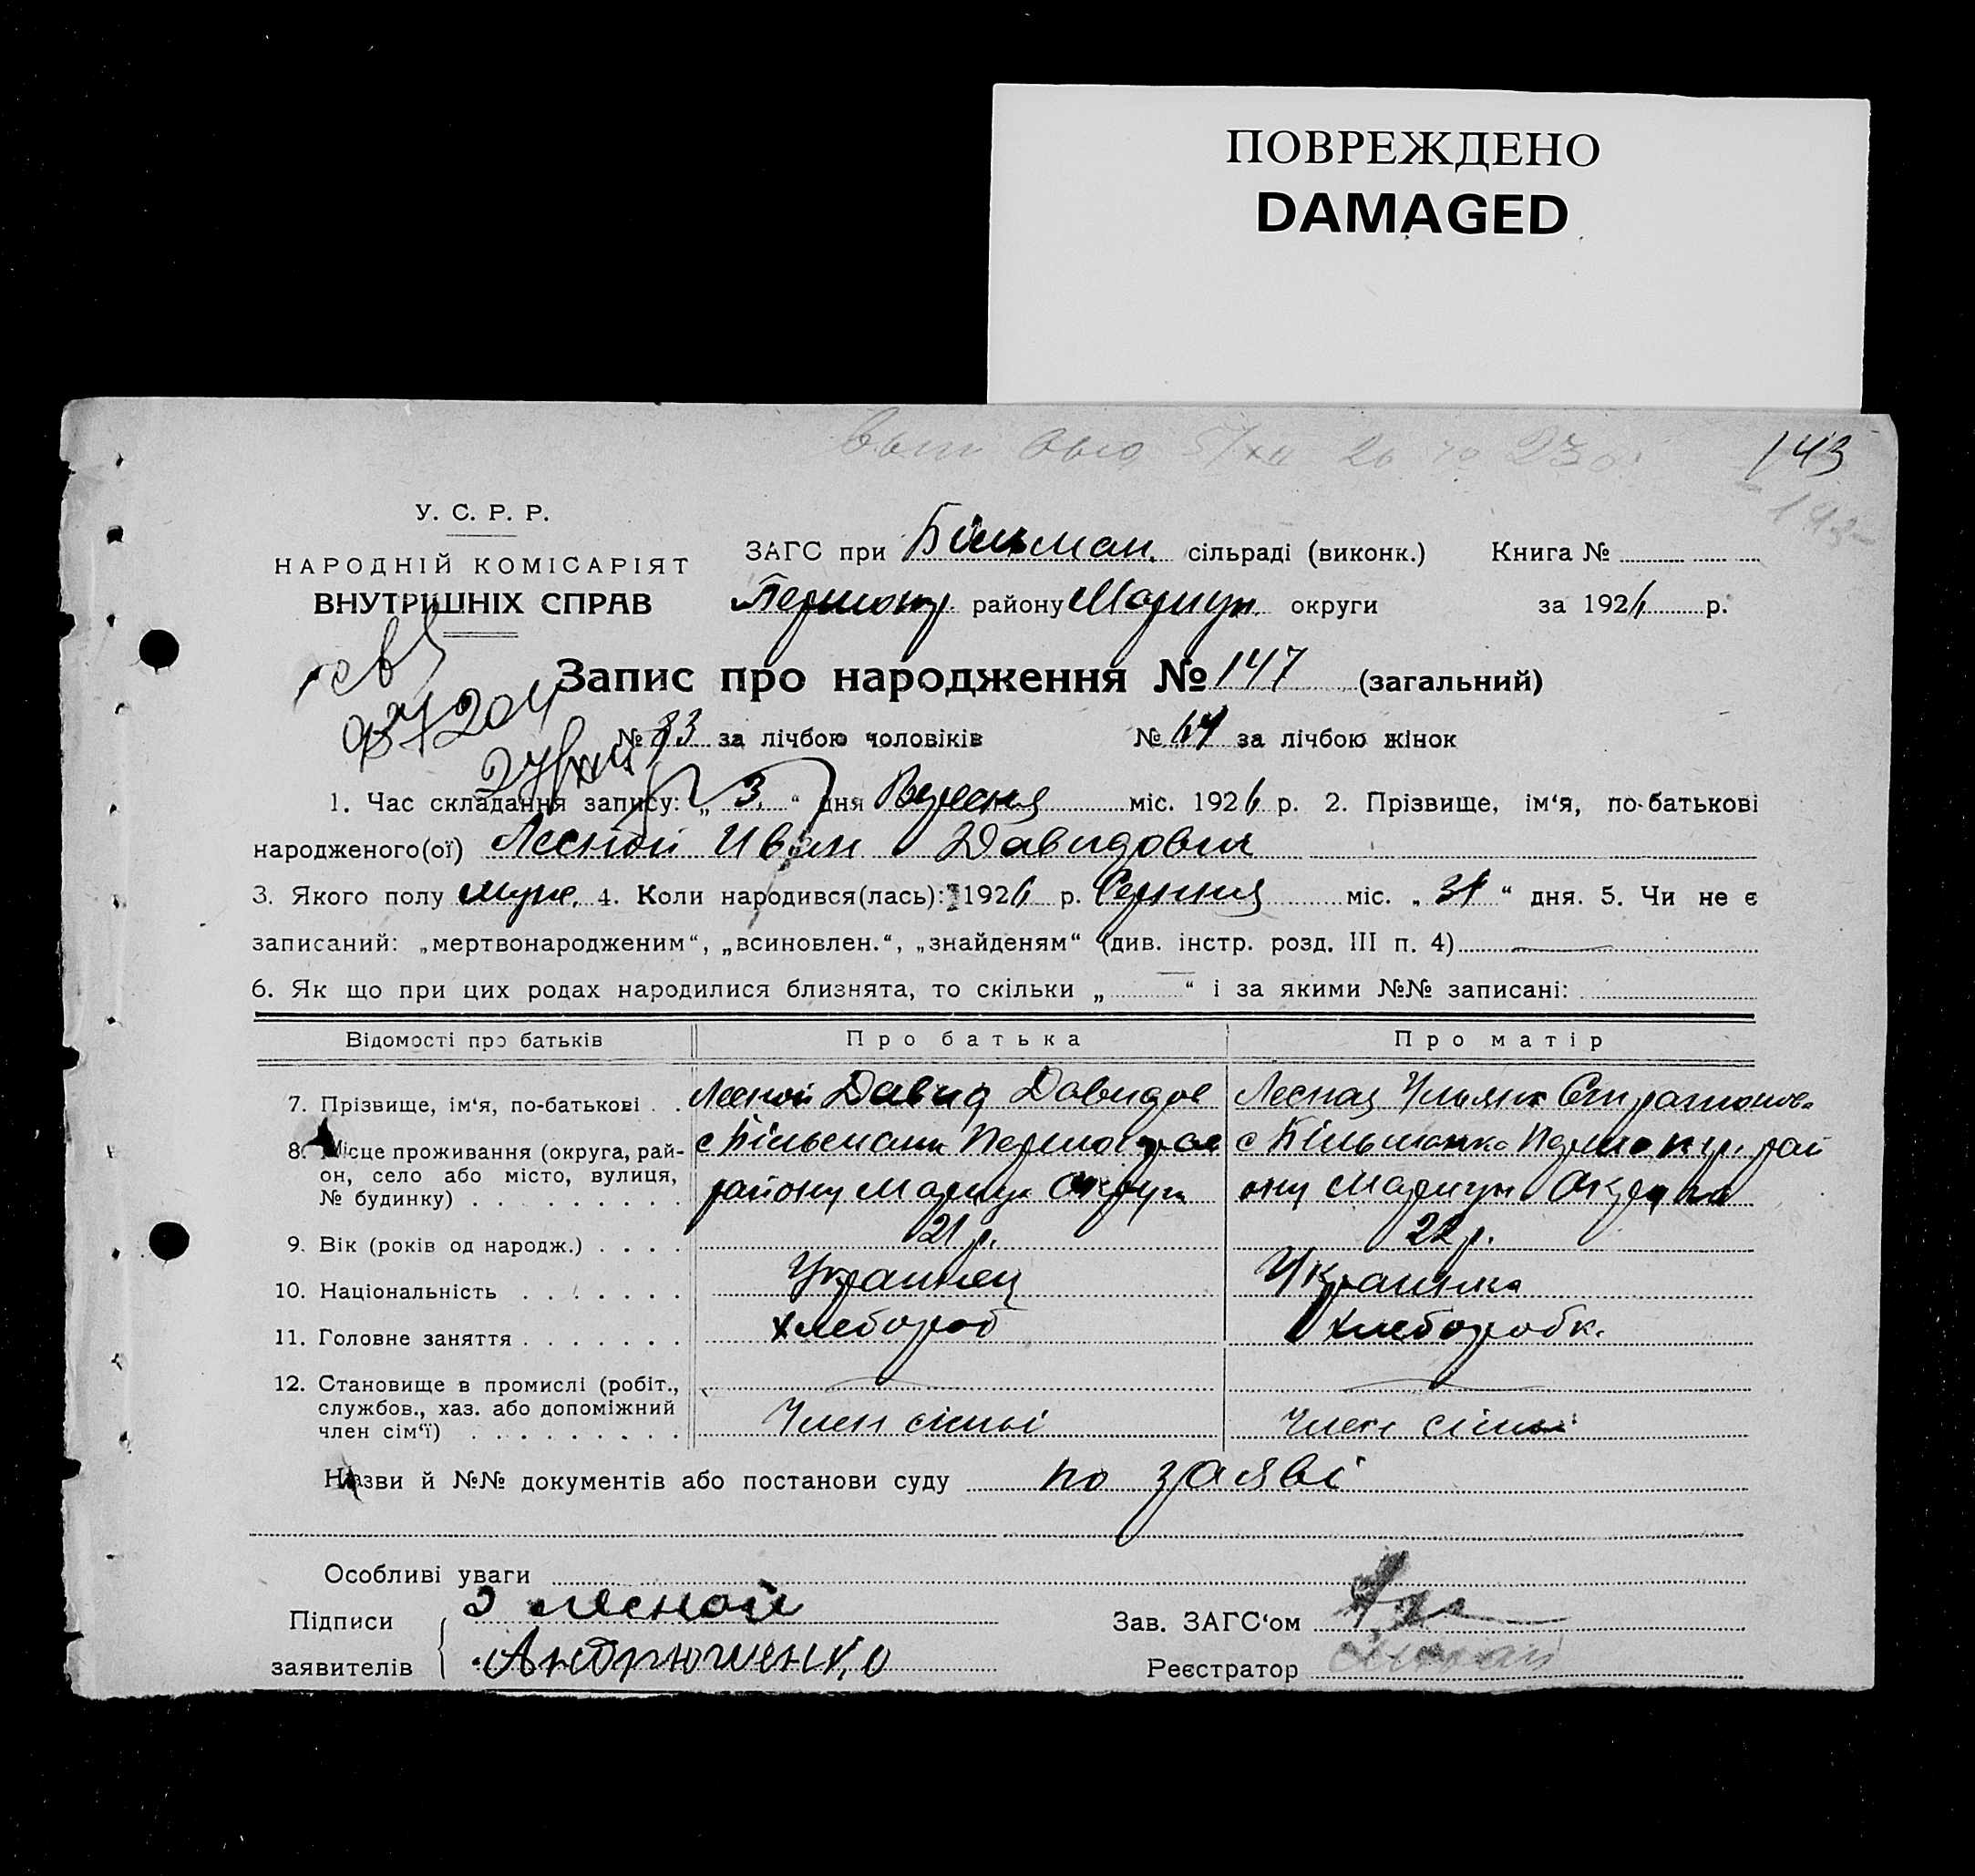 ПОВРЕЖДЕНО
DAMAGED
143
У. С. Р. Р.
НАРОДНІЙ КОМІСАРІЯТ
ВНУТРІШНІХ СПРАВ
ЗАГС при Більман. сільраді (виконк.) Книга №
району Мариуп. округи за 1926 р.
Запис про народження № 147 (загальний)
№ 83 за лічбою чоловіків № 64 за лічбою жінок
1. Час складання запису: „ 3. “ дня Вересня міс. 1926 р. 2. Прізвище, ім‘я, по-батькові
народженого(ої) Лесной Иван Давидович
3. Якого полу муж. 4. Коли народився(лась): 1926 р. Серпня міс. „ 31 “ дня. 5. Чи не є
записаний: „мертвонародженим“, „всиновлен.“, „знайденям“ (див. інстр. розд. III п. 4)
6. Як що при цих родах народилися близнята, то скільки „ “ і за якими №№ записані:
Відомості про батьків Про батька Про матір
7. Прізвище, ім‘я, по-батькові . . Лесной Давид Давидов Лесная
8. Місце проживання (округа, рай-
он, село або місто, вулиця,
№ будинку) . . . . . . . . .
с Більманка
району Мариуп Округи
с Більманка рай
ону Мариуп Округи
9. Вік (років од народж.) . . . . 21 р. 22 р.
10. Національність . . . . . . . Украинец Украинка
11. Головне заняття . . . . . . . хлебороб хлеборобк.
12. Становище в промислі (робіт.,
службов., хаз. або допоміжний
член сім‘ї) . . . . . . . . .
Член сімьі Член сімьі
Назви й №№ документів або постанови суду по заяві
Особливі уваги
Підписи лесной Зав. ЗАГС‘ом
заявителів Андрюшенко Реєстратор